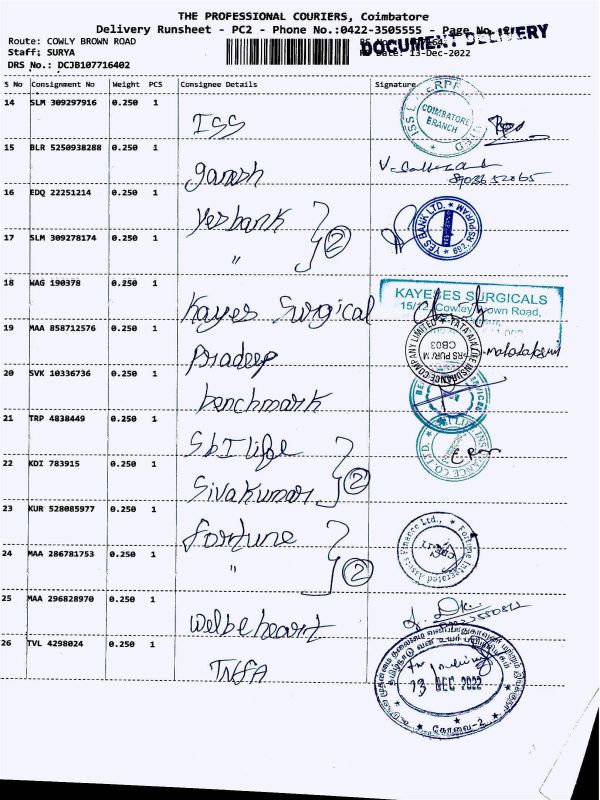 THE PROFESSIONAL COURIERS, Coimbatore
Delivery Runsheet - PC2 - Phone No.:0422-3505555 - Page No.
DOCUMENT DELIVERY
Route: COWLY BROWN ROAD
Staff: SURYA
Date: 13-Dec-2022
DRS No.: DCJB107716402
S No Consignment No Weight PCS Consignee Details Signature
14 SLM 309297916 0.250 1 ISS
COIMBATORE BRANCH
15 BLR 5250938288 0.250 1 ganesh
16 EDQ 22251214 0.250 1 Yes bank
YES BANK LTD.
17 SLM 309278174 0.250 1 " 2
18 WAG 190378 0.250 1 Kayes Surgical
KAYESES SURGICALS
Cowley Brown Road,
19 MAA 858712576 0.250 1 Pradeep
TATA AIA LIFE INSURANCE COMPANY LIMITED
CB03
20 SVK 10336736 0.250 1 benchmark
21 TRP 4838449 0.250 1 SbI life
22 KDI 783915 0.250 1 Sivakumar 2
23 KUR 528085977 0.250 1 fortune
Fortune Integrated Assets Finance Ltd.,
24 MAA 286781753 0.250 1 " 2
25 MAA 296828970 0.250 1
26 TVL 4298024 0.250 1
13 DEC 2022
கோவை-2